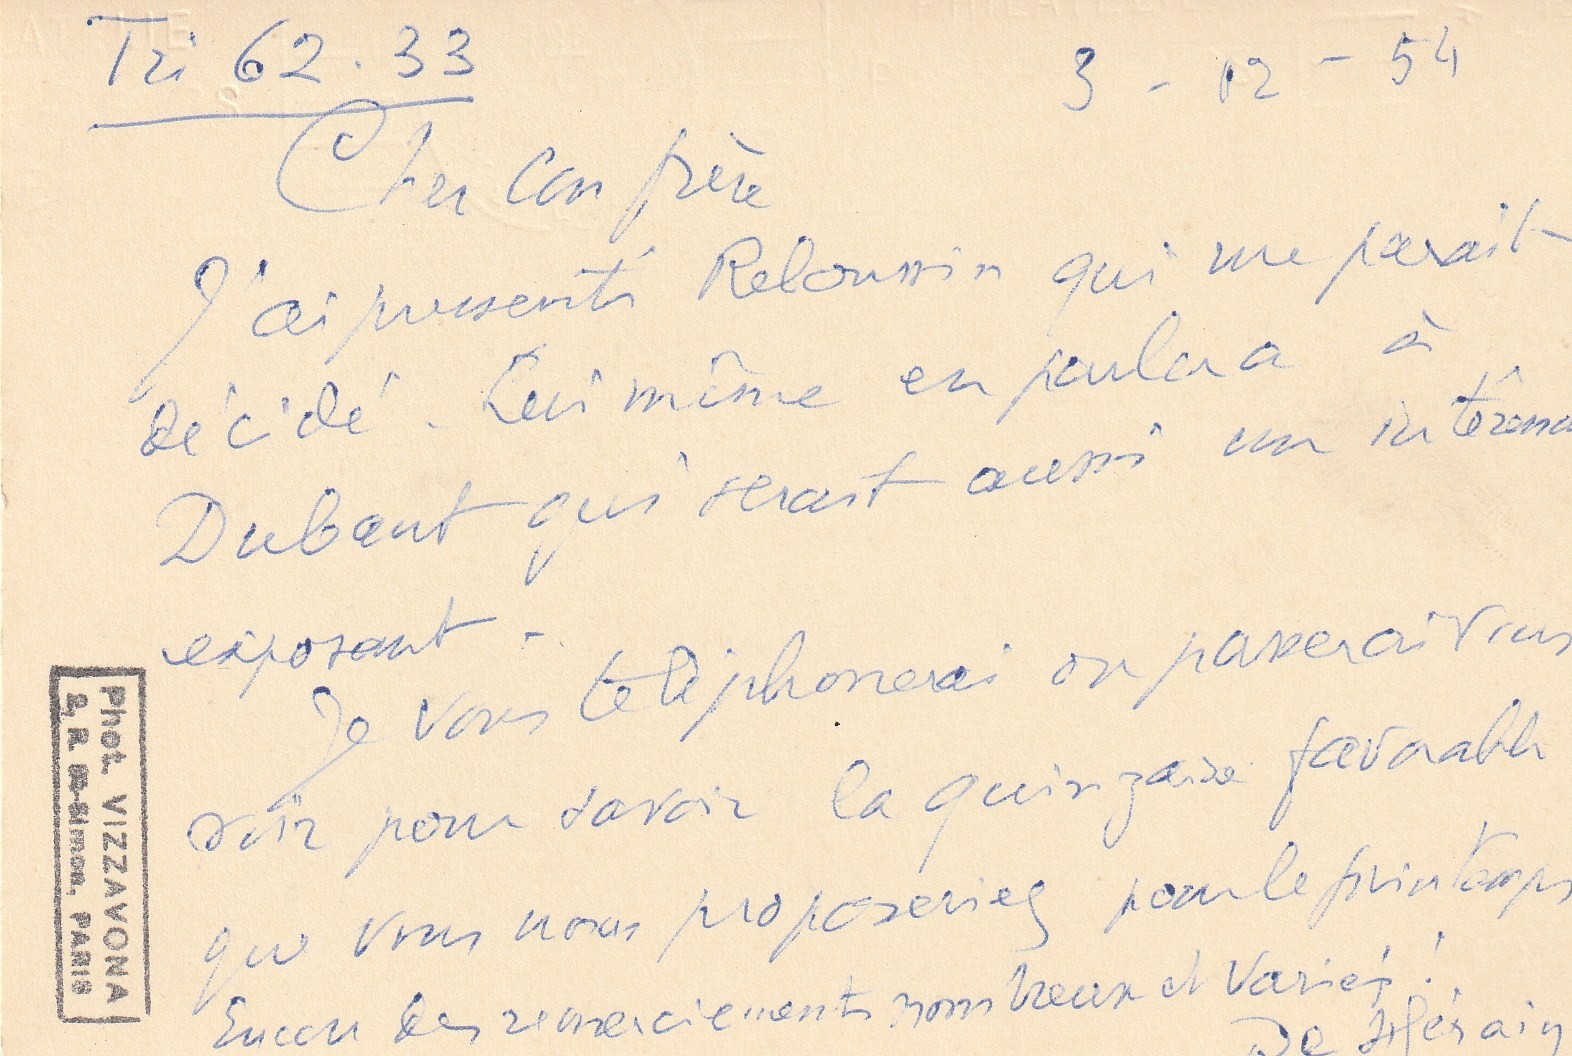 Tri 62.33
3 - 12 - 54
Cher Confrère
J'ai pressenti Reloussin qui me parait
décidé. Lui même en parlera à
Dubaut qui serait aussi un intéressa
exposant.
Je vous téléphonerai ou passerai vous
voir pour savoir la quinzaine favorable
que vous nous proposeriez pour le printemps
Encore des remerciements nombreux et variés !
De Hérain
Phot. VIZZAVONA
PARIS